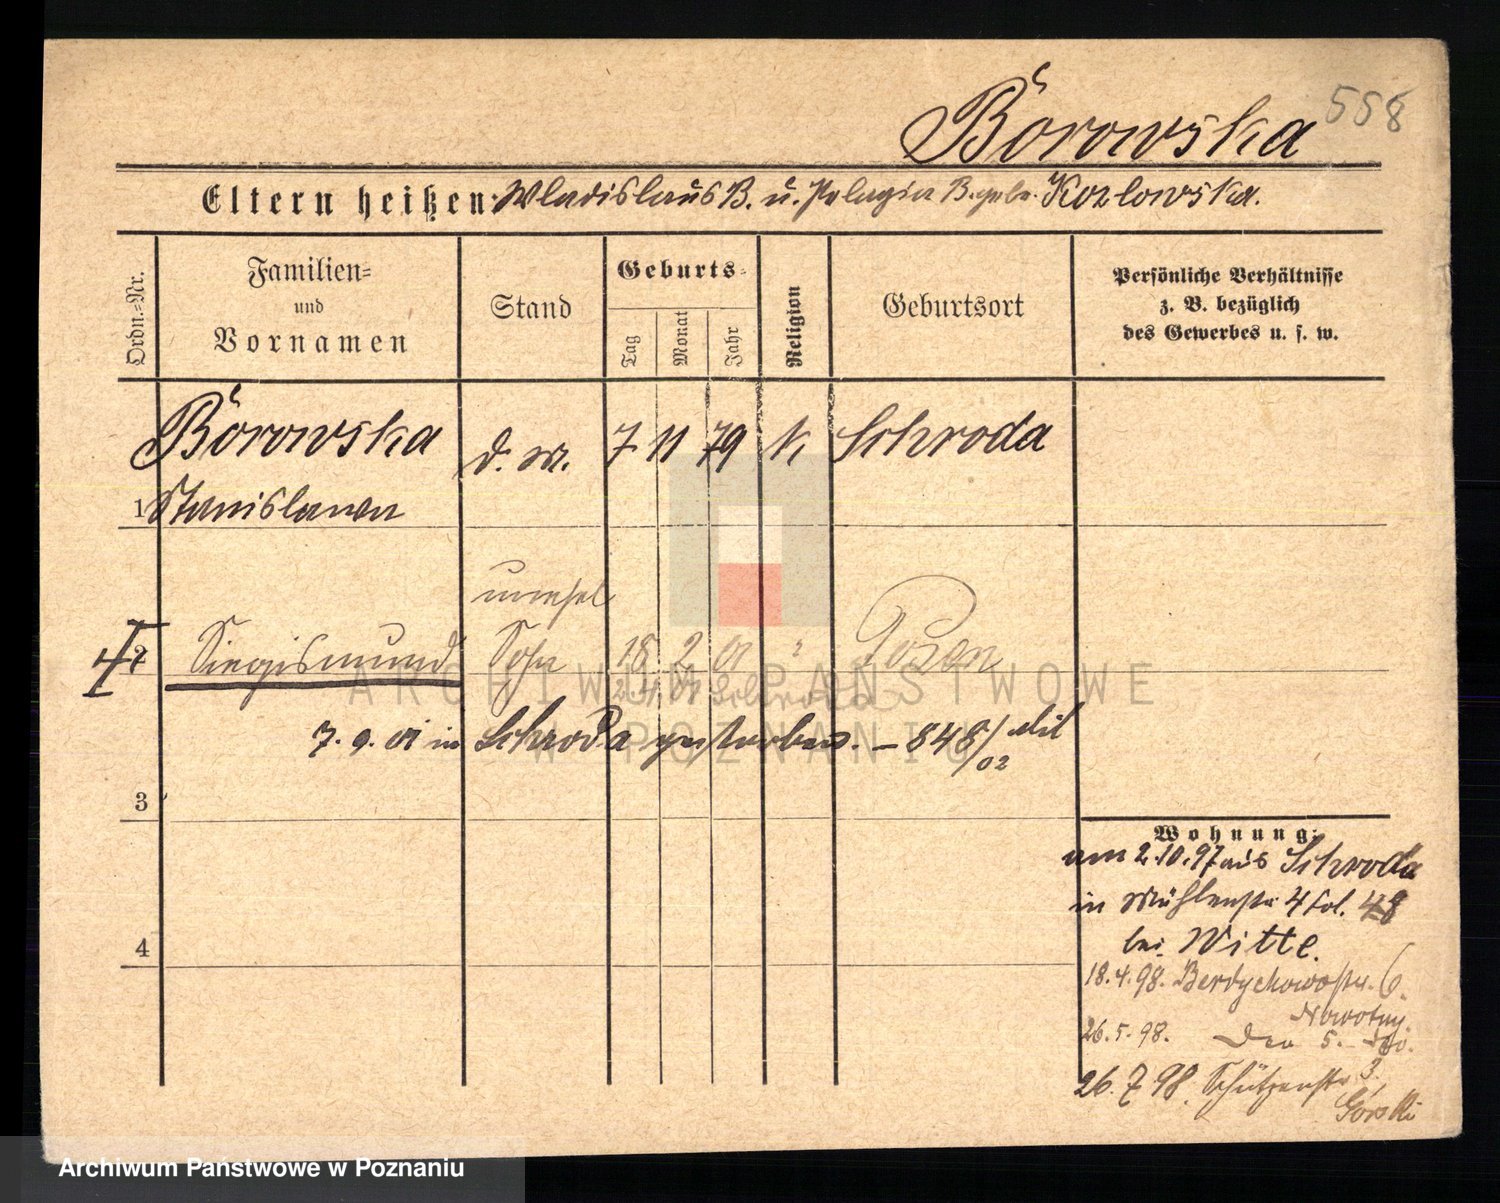 Borowska 558
Eltern heißen: Wladislaus B. u. Pelagia B. gebr. Kozlowska.
Ordn.=Nr.
Familien=
und
Vornamen
Stand
Geburts=
Tag
Monat
Jahr
Religion
Geburtsort
Persönliche Verhältnisse
z. B. bezüglich
des Gewerbes u. s. w.
Borowska d. M. 7 11 79 k. Schroda
1 Stanislawa
unehel
2 Siegismund Sohn 18 2 01 " Posen
2.4.01 Schroda
7. 9. 01 in Schroda gestorben. – 848/02
3
4
Wohnung:
am 2.10.97 aus Schroda
in Mühlenstr 4 fol. 48
bei Witte.
18.4.98. Berdychowostr. 6.
Nowotny.
26.5.98. 5.
26.7.98. Schützenstr 3.
Górski
ARCHIWUM PAŃSTWOWE
W POZNANIU
Archiwum Państwowe w Poznaniu